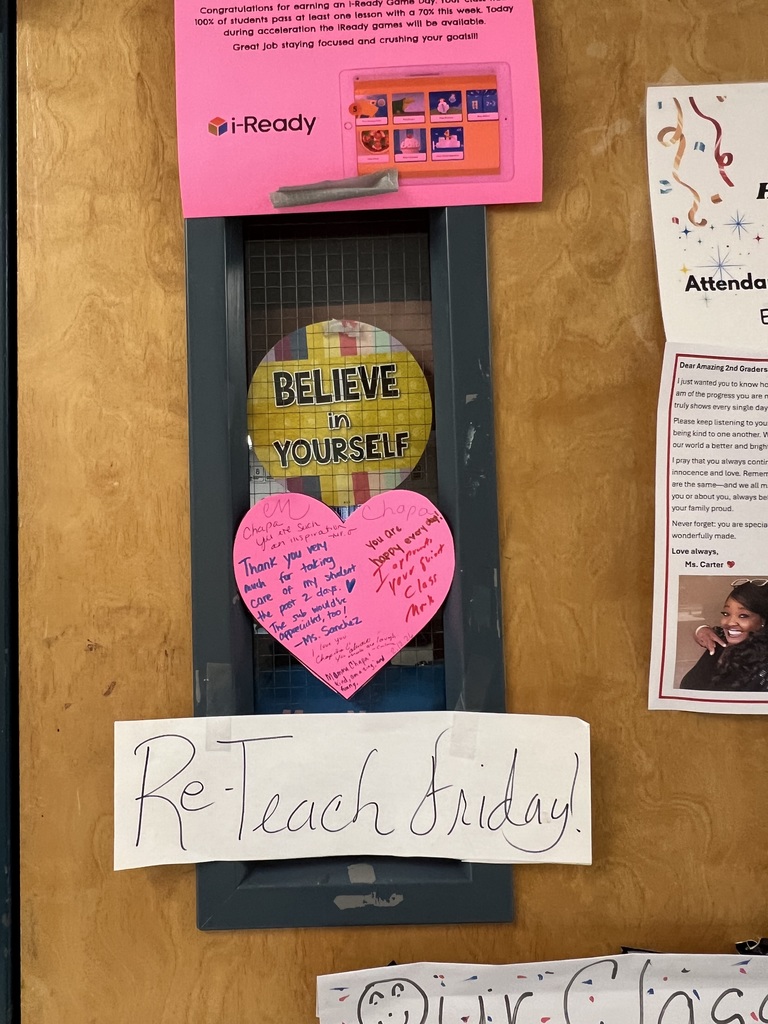 Congratulations for earning an i-Ready Game Day. Your class
100% of students pass at least one lesson with a 70% this week. Today
during acceleration the iReady games will be available.
Great job staying focused and crushing your goals!!!
i-Ready
BELIEVE
in
YOURSELF
Chapa
Chapa
you are such
an inspiration
Thank you very
much for taking
care of my student
the past 2 days.
The sub would've
appreciated, too!
-Ms. Sanchez
you are
happy every day!
I
your
Class
I love you
Mama Chapa
kind, amazing, and
Re-Teach Friday!
Attenda
E
Dear Amazing 2nd Graders
I just wanted you to know ho
am of the progress you are m
truly shows every single day
Please keep listening to you
being kind to one another. W
our world a better and brigh
I pray that you always contin
innocence and love. Remem
are the same—and we all m
you or about you, always be
your family proud.
Never forget: you are specia
wonderfully made.
Love always,
Ms. Carter
Our Class